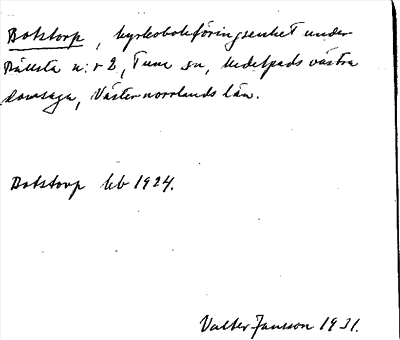 Botstorp, kyrkobokföringsenhet under
Bällsta n:r 2, Tuna sn, Medelpads västra
domsaga, Västernorrlands län.
Botstorp kb 1924.
Valter Jansson 1931.